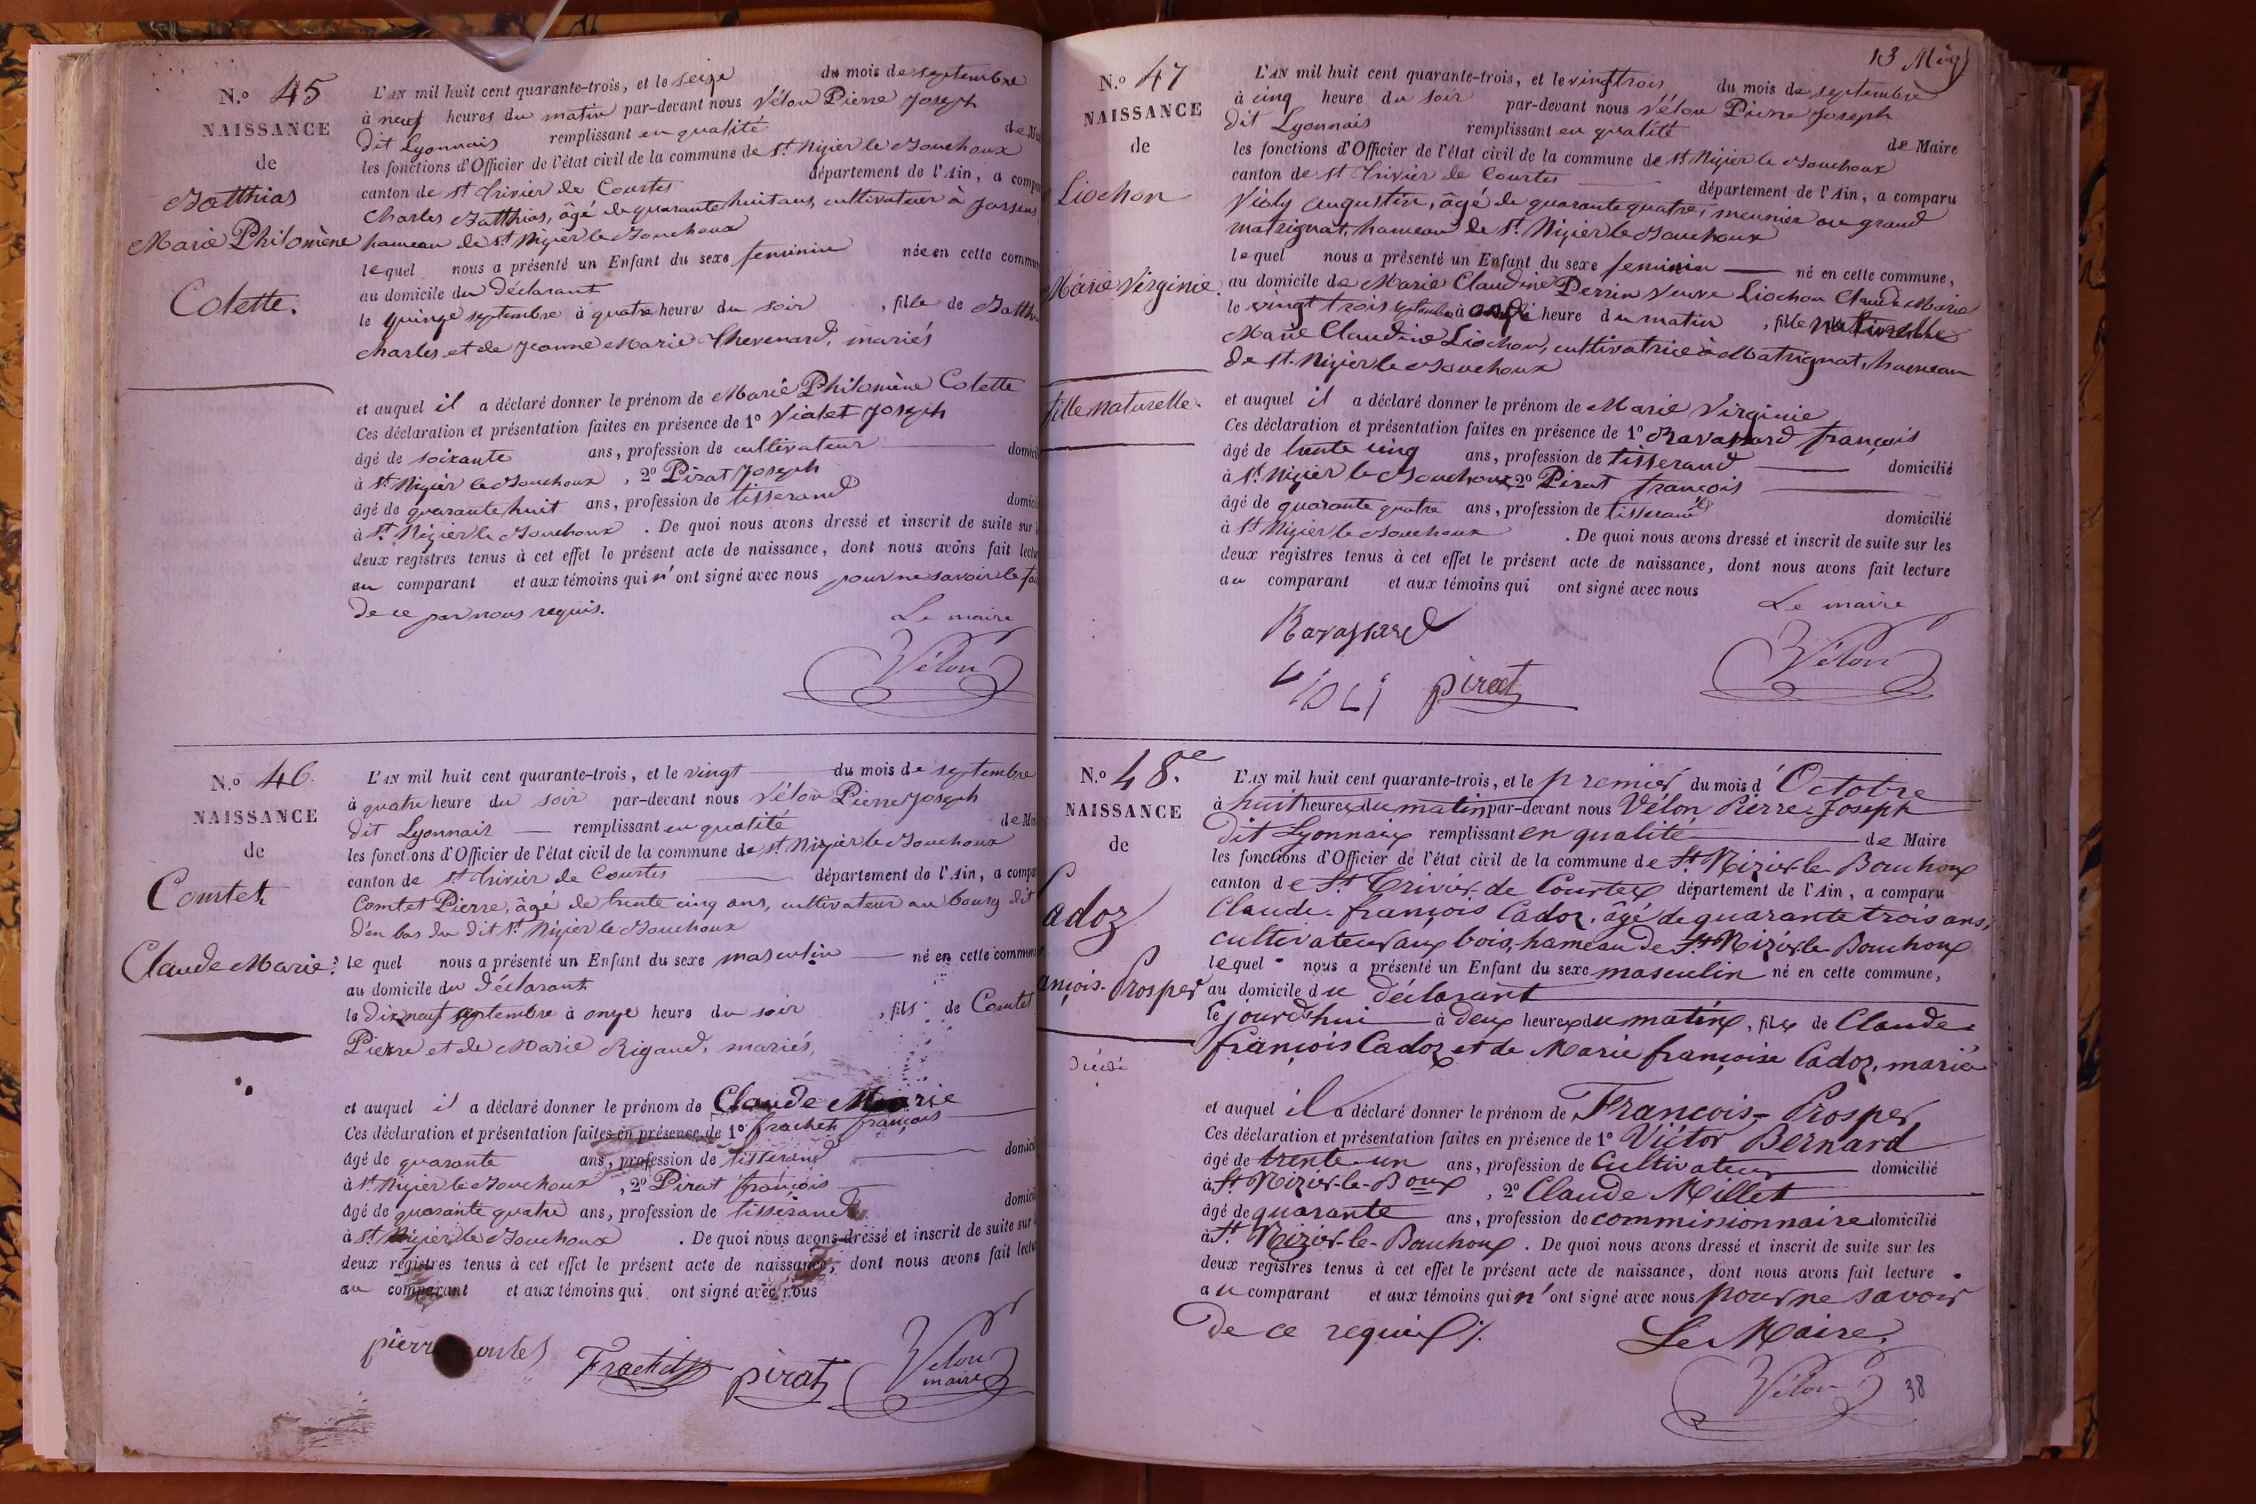 N.o 45
NAISSANCE
de
Batthias
Marie Philomène
Colette.
L'AN mil huit cent quarante-trois, et le seize du mois de septembre
à neuf heures du matin par-devant nous Vélon Pierre Joseph
dit Lyonnais remplissant en qualité de
les fonctions d'Officier de l'état civil de la commune de St. Nizier le Bouchoux
canton de St Trivier de Courtes département de l'Ain, a
Charles Batthias, âgé de quarante huit ans, cultivateur à
hameau de St. Nizier le Bouchoux
lequel nous a présenté un Enfant du sexe feminin née en cette
au domicile du déclarant
le quinze septembre à quatre heures du soir, fille de
Charles et de Jeanne Marie Thevenard, mariés
et auquel il a déclaré donner le prénom de Marie Philomène Colette
Ces déclaration et présentation faites en présence de 1o Vialet Joseph
âgé de soixante ans, profession de cultivateur
à St. Nizier le Bouchoux, 2o Pirat Joseph
âgé de quarante huit ans, profession de tisserand
à St. Nizier le Bouchoux. De quoi nous avons dressé et inscrit de suite sur
deux registres tenus à cet effet le présent acte de naissance, dont nous avons fait
au comparant et aux témoins qui n'ont signé avec nous pour ne savoir le
de ce par nous requis.
Le maire
Vélon
N.o 46.
NAISSANCE
de
Comtet
Claude Marie.
L'AN mil huit cent quarante-trois, et le vingt du mois de septembre
à quatre heure du soir par-devant nous Vélon Pierre Joseph
dit Lyonnais remplissant en qualité de
les fonctions d'Officier de l'état civil de la commune de St. Nizier le Bouchoux
canton de St. Trivier de Courtes département de l'Ain, a
Comtet Pierre, âgé de trente cinq ans, cultivateur au bourg dit
d'en bas du dit St. Nizier le Bouchoux
le quel nous a présenté un Enfant du sexe masculin né en cette
au domicile du déclarant
le dix neuf septembre à onze heure du soir, fils de Comtet
Pierre et de Marie Rigaud, mariés,
et auquel il a déclaré donner le prénom de Claude Marie
Ces déclaration et présentation faites en présence de 1o frachet françois
âgé de quarante ans, profession de tisserand
à St Nizier le Bouchoux, 2o Pirat françois
âgé de quarante quatre ans, profession de tisserand
à St. Nizier le Bouchoux. De quoi nous avons dressé et inscrit de suite sur
deux registres tenus à cet effet le présent acte de naissance, dont nous avons fait
au comparant et aux témoins qui ont signé avec nous
Frachet pirat Velon
maire
13
N.o 47
NAISSANCE
de
Liochon
Marie Virginie.
fille naturelle.
L'AN mil huit cent quarante-trois, et le vingt trois du mois de septembre
à cinq heure du soir par-devant nous Vélon Pierre Joseph
dit Lyonnais remplissant en qualité de Maire
les fonctions d'Officier de l'état civil de la commune de St Nizier le Bouchoux
canton de St Trivier de Courtes département de l'Ain, a comparu
Violy augustin, âgé de quarante quatre, meunier au grand
matrignat, hameau de St. Nizier le Bouchoux
lequel nous a présenté un Enfant du sexe feminin né en cette commune,
au domicile de Marie Claudine Perrin veuve Liochon Claude Marie
le vingt trois septembre à heure du matin, fille naturelle
Marie Claudine Liochon, cultivatrice à Matrignat, hameau
de St. Nizier le Bouchoux
et auquel il a déclaré donner le prénom de Marie Virginie
Ces déclaration et présentation faites en présence de 1o Ravassard françois
âgé de trente cinq ans, profession de tisserand domicilié
à St. Nizier le Bouchoux, 2o Pirat françois
âgé de quarante quatre ans, profession de tisserand domicilié
à St Nizier le Bouchoux. De quoi nous avons dressé et inscrit de suite sur les
deux registres tenus à cet effet le présent acte de naissance, dont nous avons fait lecture
au comparant et aux témoins qui ont signé avec nous
Le maire
Ravassard
pirat Vélon
N.o 48.e
NAISSANCE
de
Cadoz
Prosper
L'AN mil huit cent quarante-trois, et le premier du mois d'Octobre
à huit heures du matin par-devant nous Vélon Pierre-Joseph
dit Lyonnais remplissant en qualité de Maire
les fonctions d'Officier de l'état civil de la commune de St. Nizier-le-Bouchoux
canton de St Trivier de Courtes département de l'Ain, a comparu
Claude-françois Cadoz, âgé de quarante trois ans,
cultivateur aux bois, hameau de St Nizier-le-Bouchoux
lequel nous a présenté un Enfant du sexe masculin né en cette commune,
au domicile du déclarant
le jourd'hui à deux heures du matin, fils de Claude-
françois Cadoz et de Marie françoise Cadoz, mariés
et auquel il a déclaré donner le prénom de François-Prosper
Ces déclaration et présentation faites en présence de 1o Victor Bernard
âgé de trente-un ans, profession de Cultivateur domicilié
à St Nizier-le-Boux, 2o Claude Millet
âgé de quarante ans, profession de commissionnaire domicilié
à St. Nizier-le-Bouchoux. De quoi nous avons dressé et inscrit de suite sur les
deux registres tenus à cet effet le présent acte de naissance, dont nous avons fait lecture
au comparant et aux témoins qui n'ont signé avec nous pour ne savoir
de ce requis
Le Maire,
Vélon
38